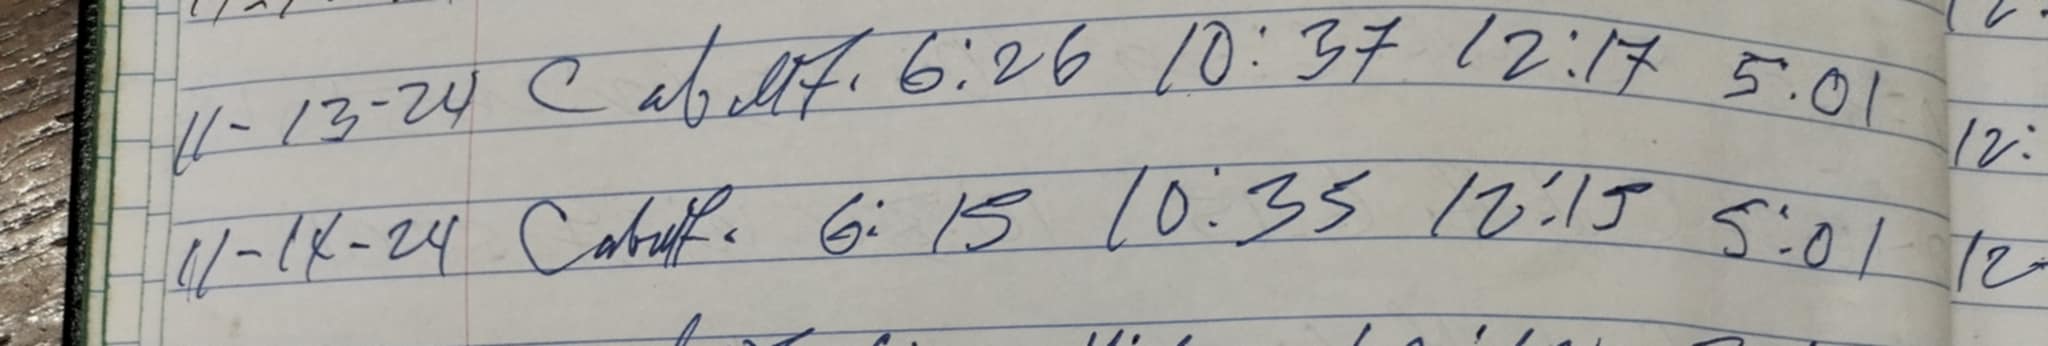 11-13-24 6:26 10:37 12:17 5:01 12:
11-14-24 6:15 10:35 12:15 5:01 12